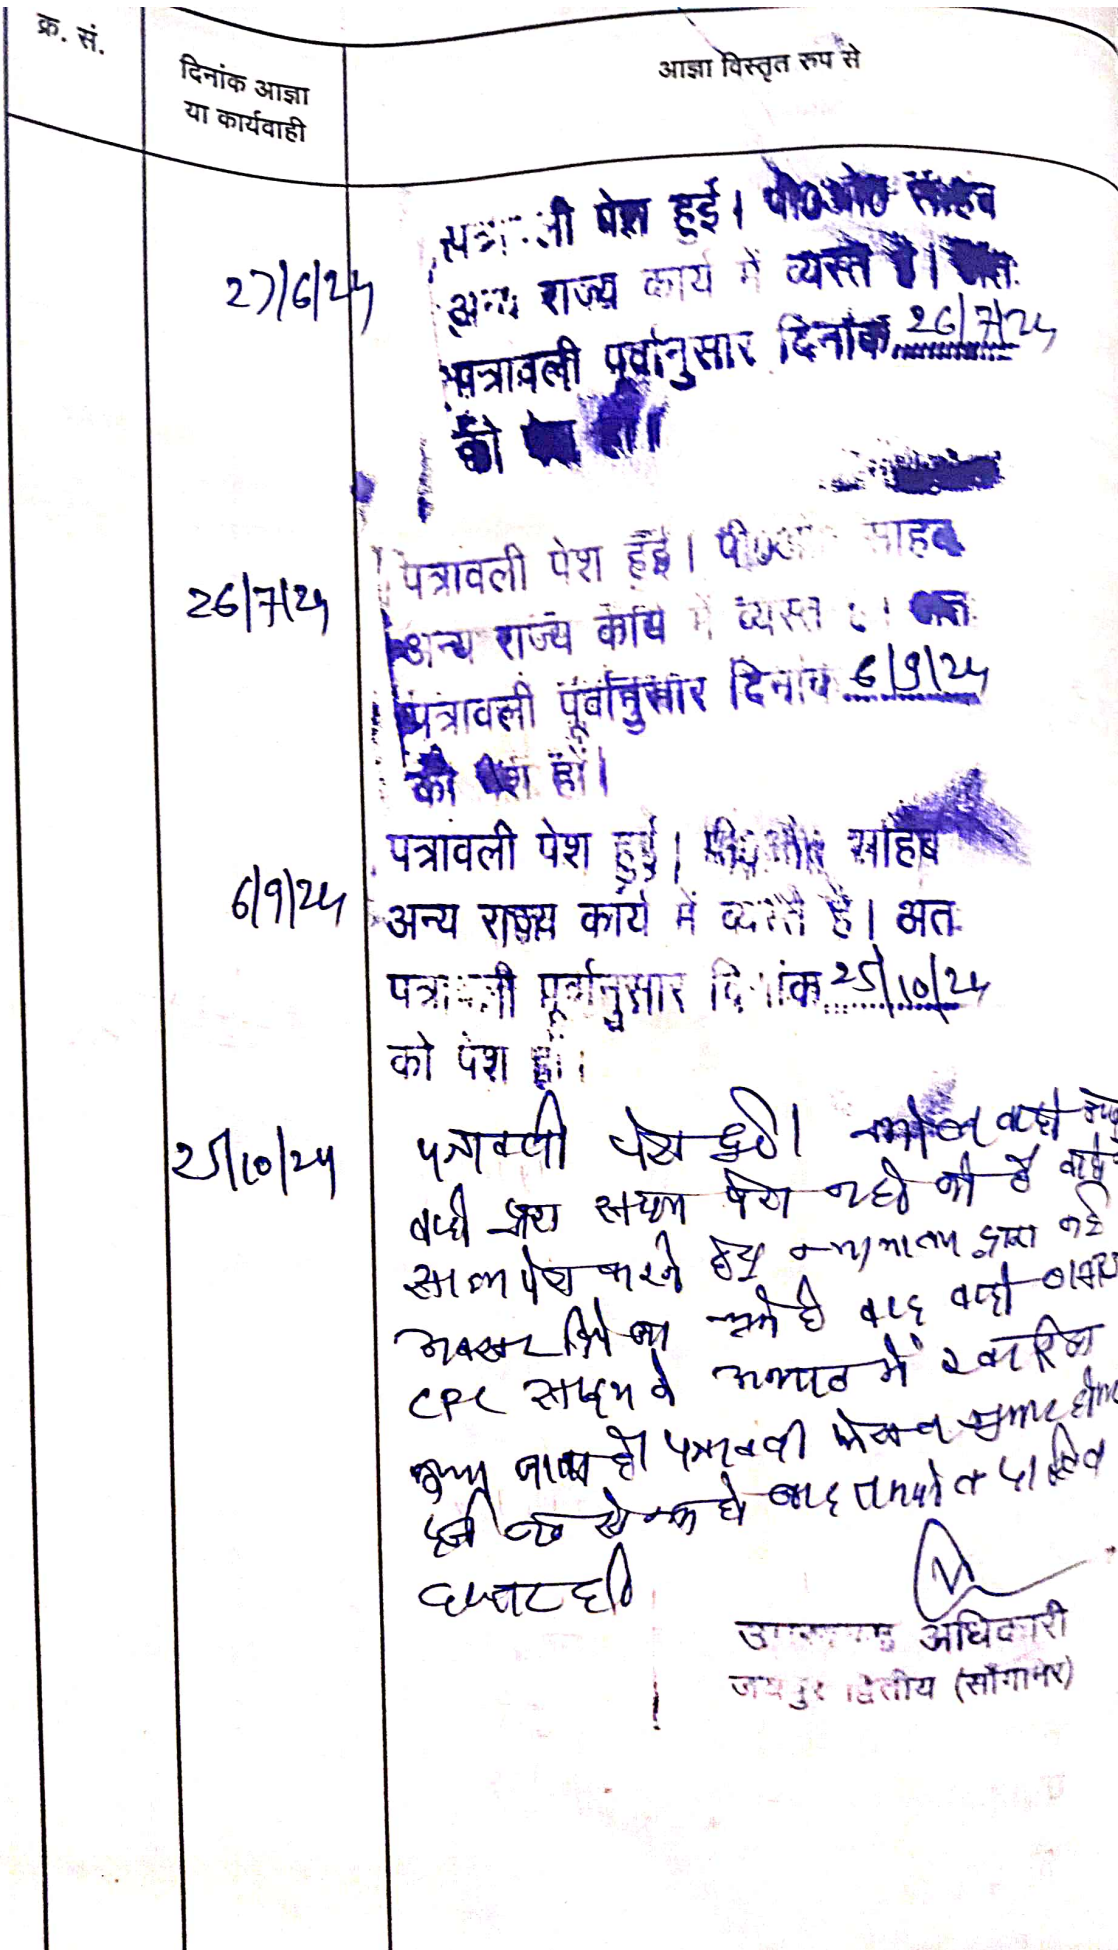 क्र. सं.
दिनांक आज्ञा
या कार्यवाही
आज्ञा विस्तृत रुप से
27/6/24
पत्रावली पेश हुई। पी०ओ० साहब
अन्य राज्य कार्य में व्यस्त है। अतः
पत्रावली पूर्वानुसार दिनांक 26/7/24
को पेश हो।
26/7/24
पत्रावली पेश हुई। पी०ओ० साहब
अन्य राज्य कार्य में व्यस्त है। अतः
पत्रावली पूर्वानुसार दिनांक 6/9/24
को पेश हो।
6/9/24
पत्रावली पेश हुई। पी०ओ० साहब
अन्य राज्य कार्य में व्यस्त है। अतः
पत्रावली पूर्वानुसार दिनांक 25/10/24
को पेश हो।
25/10/24
पत्रावली पेश हुई। वादी
वादी द्वारा साक्ष्य पेश नहीं की है
साक्ष्य पेश करने हेतु न्यायालय द्वारा कई
अवसर दिये जा चुके है वाद वादी
CPC साक्ष्य के अभाव में खारिज
किया जाता है। पत्रावली फैसल शुमार होकर
दर्ज नम्बर से कम हो बाद तकमील दाखिल
दफ्तर हो।
उपखण्ड अधिकारी
जयपुर द्वितीय (सांगानेर)